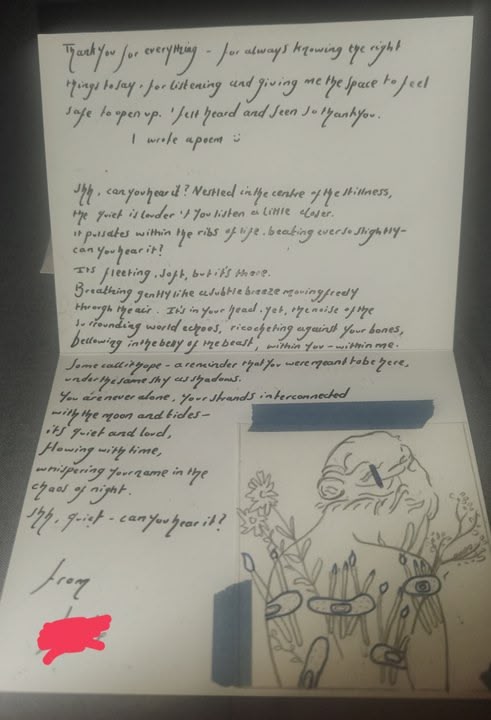 Thank you for everything - for always knowing the right
things to say. for listening and giving me the space to feel
safe to open up. I felt heard and seen so thank you.
I wrote a poem :)
Shh, can you hear it? Nestled in the centre of the stillness,
the quiet is louder if you listen a little closer.
it pulsates within the ribs of life. beating ever so slightly-
can you hear it?
It's fleeting, soft, but it's there.
Breathing gently like a subtle breeze moving freely
through the air. It's in your head. Yet, the noise of the
surrounding world echoes, ricocheting against your bones,
bellowing in the body of the beast, within you - within me.
Some call it hope - a reminder that you were meant to be here,
under the same sky as shadows.
You are never alone, your strands interconnected
with the moon and tides-
it's quiet and loud,
flowing with time,
whispering your name in the
chaos of night.
Shh, quiet - can you hear it?
from